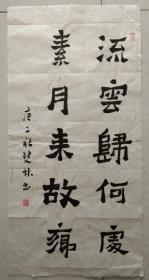 流雲歸何處
素月來故鄉
庚子秋